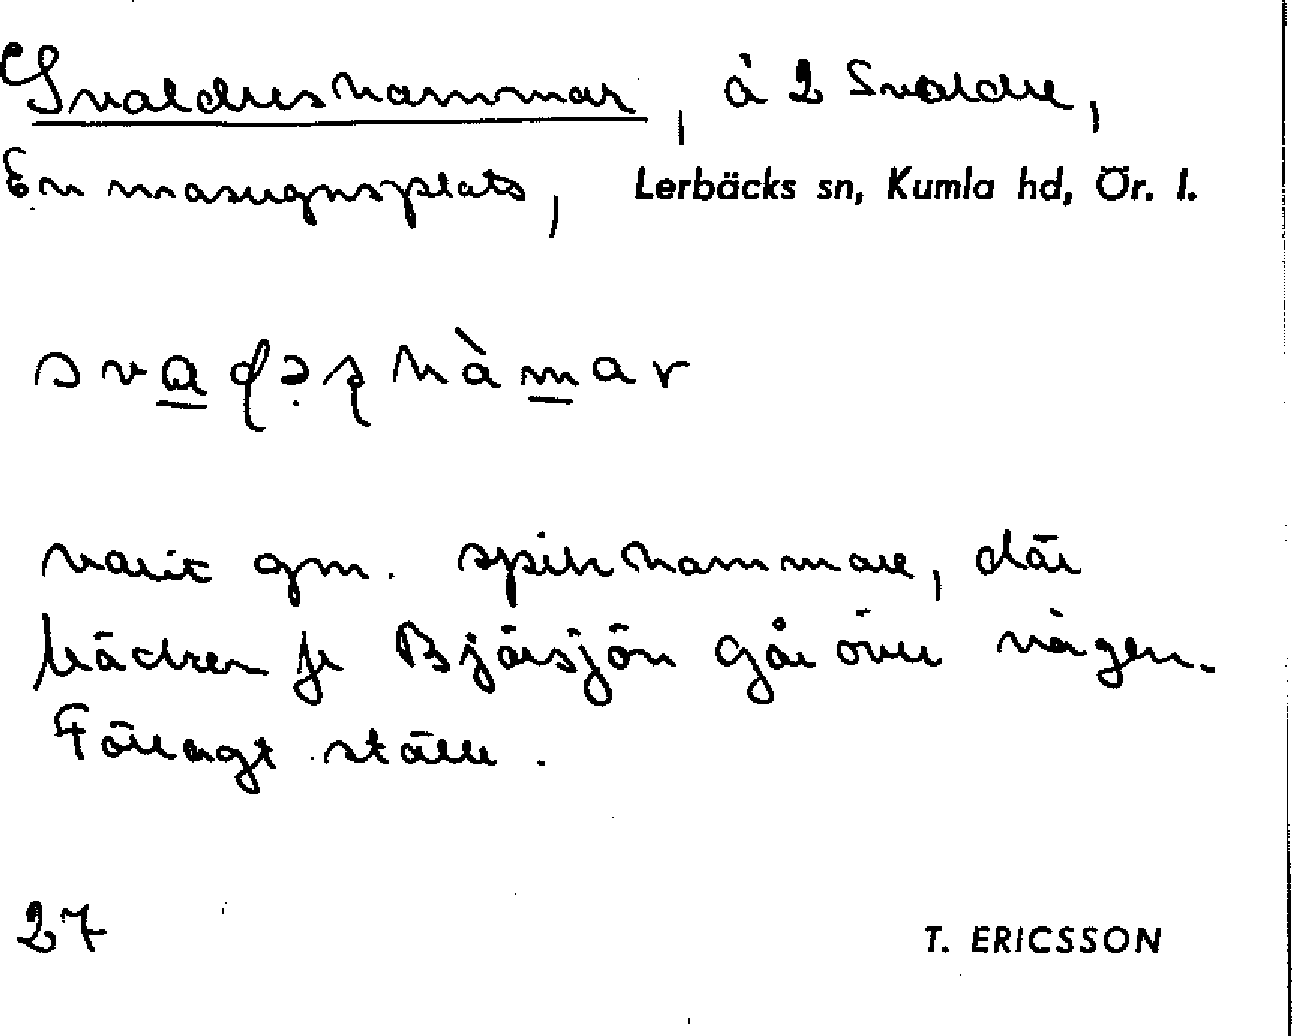 Svaldreshammar, å 2 Svaldre,
En masugnsplats, Lerbäcks sn, Kumla hd, Ör. l.
varit gm. spikhammare, där
bäcken fr Bjärsjön går över vägen.
Förlagt ställe.
27 T. ERICSSON